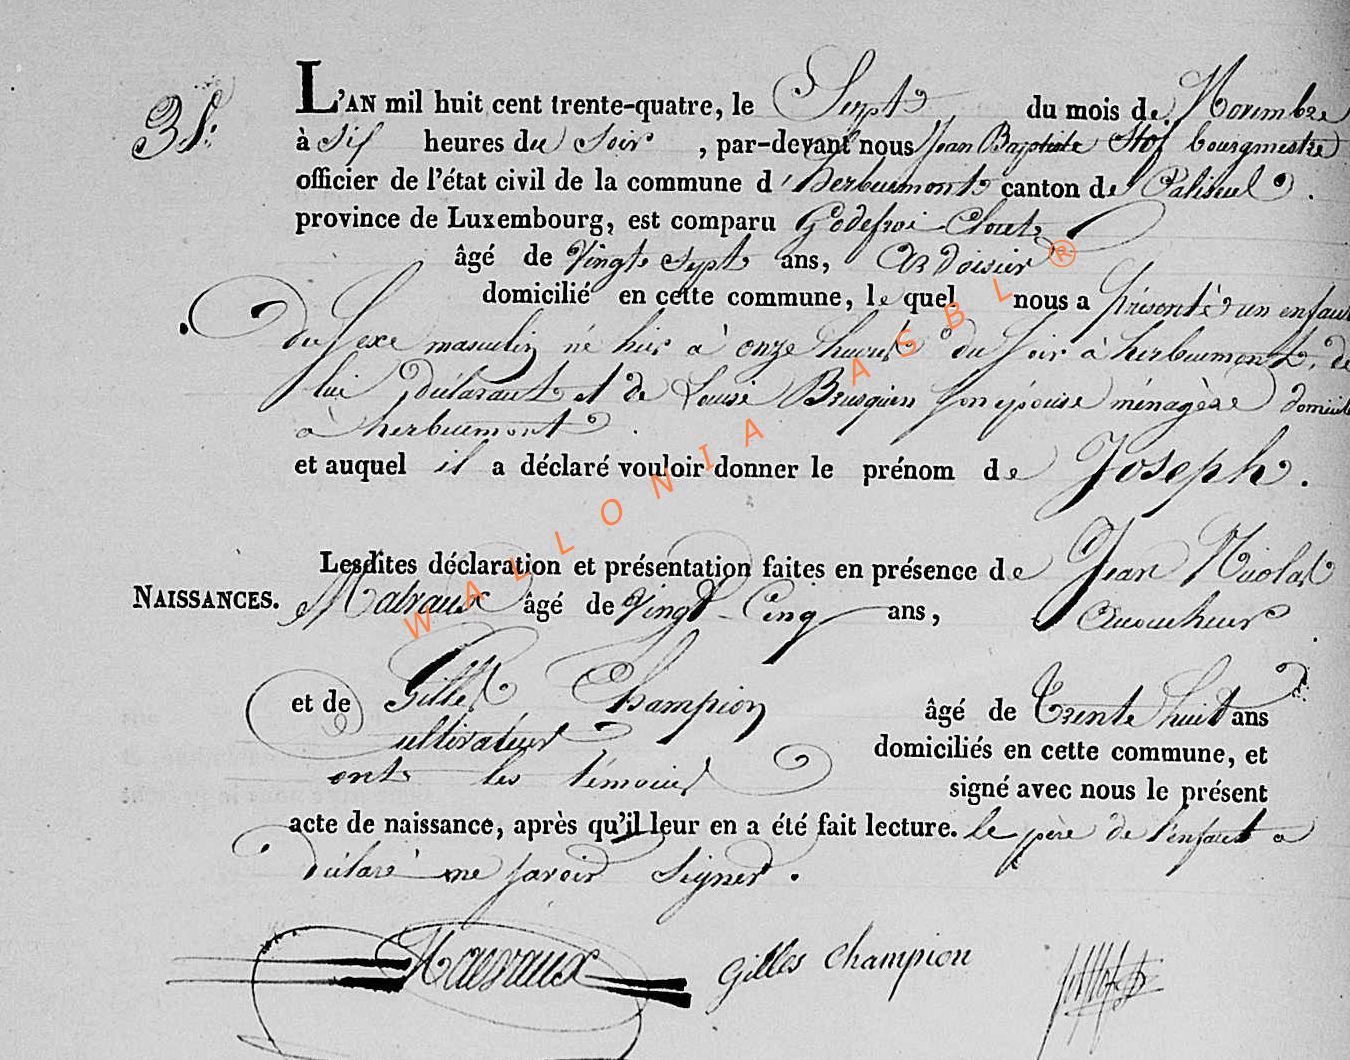 38.
L'AN mil huit cent trente-quatre, le Sept du mois de Novembre
à Six heures du Soir , par-devant nous Jean Baptiste Stof bourgmestre
officier de l'état civil de la commune d'herbeumont canton de Paliseul .
province de Luxembourg, est comparu Godefroi Clout
âgé de Vingt Sept ans, Ardoisier
domicilié en cette commune, le quel nous a présenté un enfant
du Sexe masculin né hier à onze heures du Soir à herbeumont, de
lui déclarant et de Louise Brusquin Son épouse ménagère domicilié
à herbeumont .
et auquel il a déclaré vouloir donner le prénom de Joseph .
Lesdites déclaration et présentation faites en présence de Jean Nicolas
NAISSANCES. Malvaux âgé de Vingt-Cinq ans,
et de Gilles Champion âgé de Trente huit ans
Cultivateur domiciliés en cette commune, et
ont les témoins signé avec nous le présent
acte de naissance, après qu'il leur en a été fait lecture. le père de l'enfant a
déclaré ne savoir Signer .
Malvaux Gilles Champion
WALLONIA ASBL ®